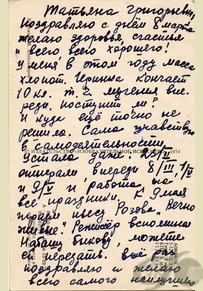 Татьяна Григорьевна
Поздравляю с днём 8 марта
желаю здоровья, счастье
и всего всего хорошего!
У меня в этом году масса
хлопот. Иринка кончает
10 кл. т. ч. мучения впе-
реди. поступит ли?
и куда ещё точно не
решила. Сама участвую
в самодеятельности
устала даже.
впереди 8/III, 1/V
и 9/V и работа на
все праздники. К 9 мая
играем пьесу Розова „Вечно
живые".
Наташу Быкову, может
ей передать. Ещё раз
поздравляю и желаю
всего самого наилучшего